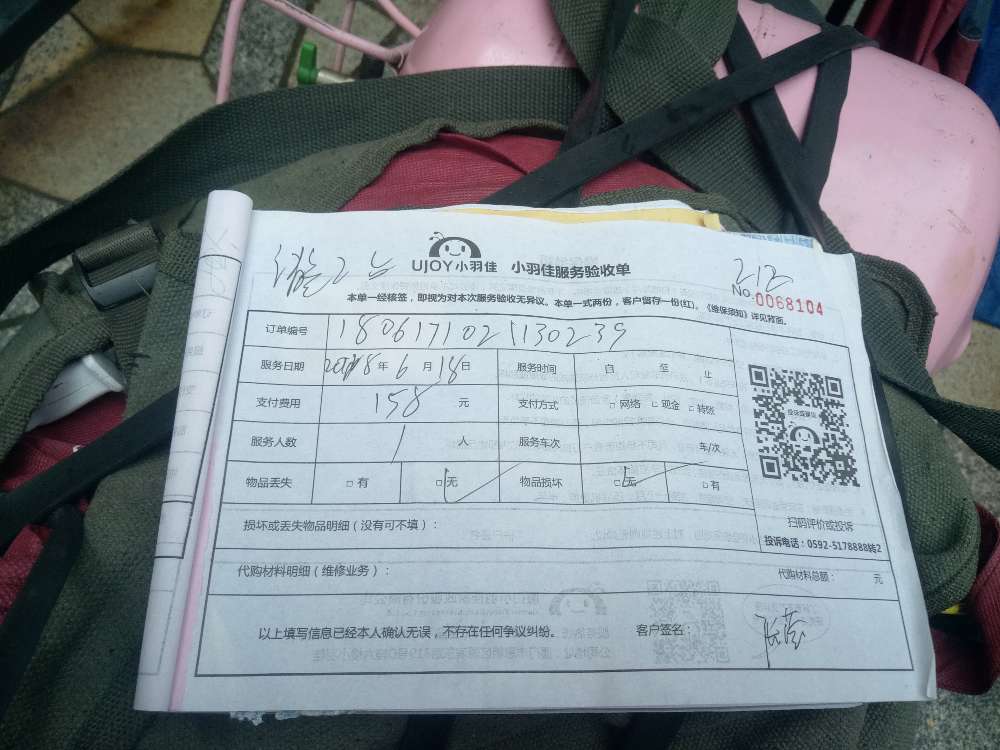 UJOY小羽佳 小羽佳服务验收单
212
No:0068104
本单一经核签，即视为对本次服务验收无异议。本单一式两份，客户留存一份(红)。《维保须知》详见救面。
订单编号 1806171021130239
服务日期 2018年6月18日 服务时间 自 至 止
支付费用 158 元 支付方式 □网络 □现金 □转账
服务人数 1 人 服务车次 车/次
物品丢失 □有 □无 物品损坏 □无 □有
投诉或建议
扫码评价或投诉
投诉电话：0592-5178888转2
损坏或丢失物品明细（没有可不填）：
代购材料明细（维修业务）： 代购材料总额： 元
以上填写信息已经本人确认无误，不存在任何争议纠纷。 客户签名：